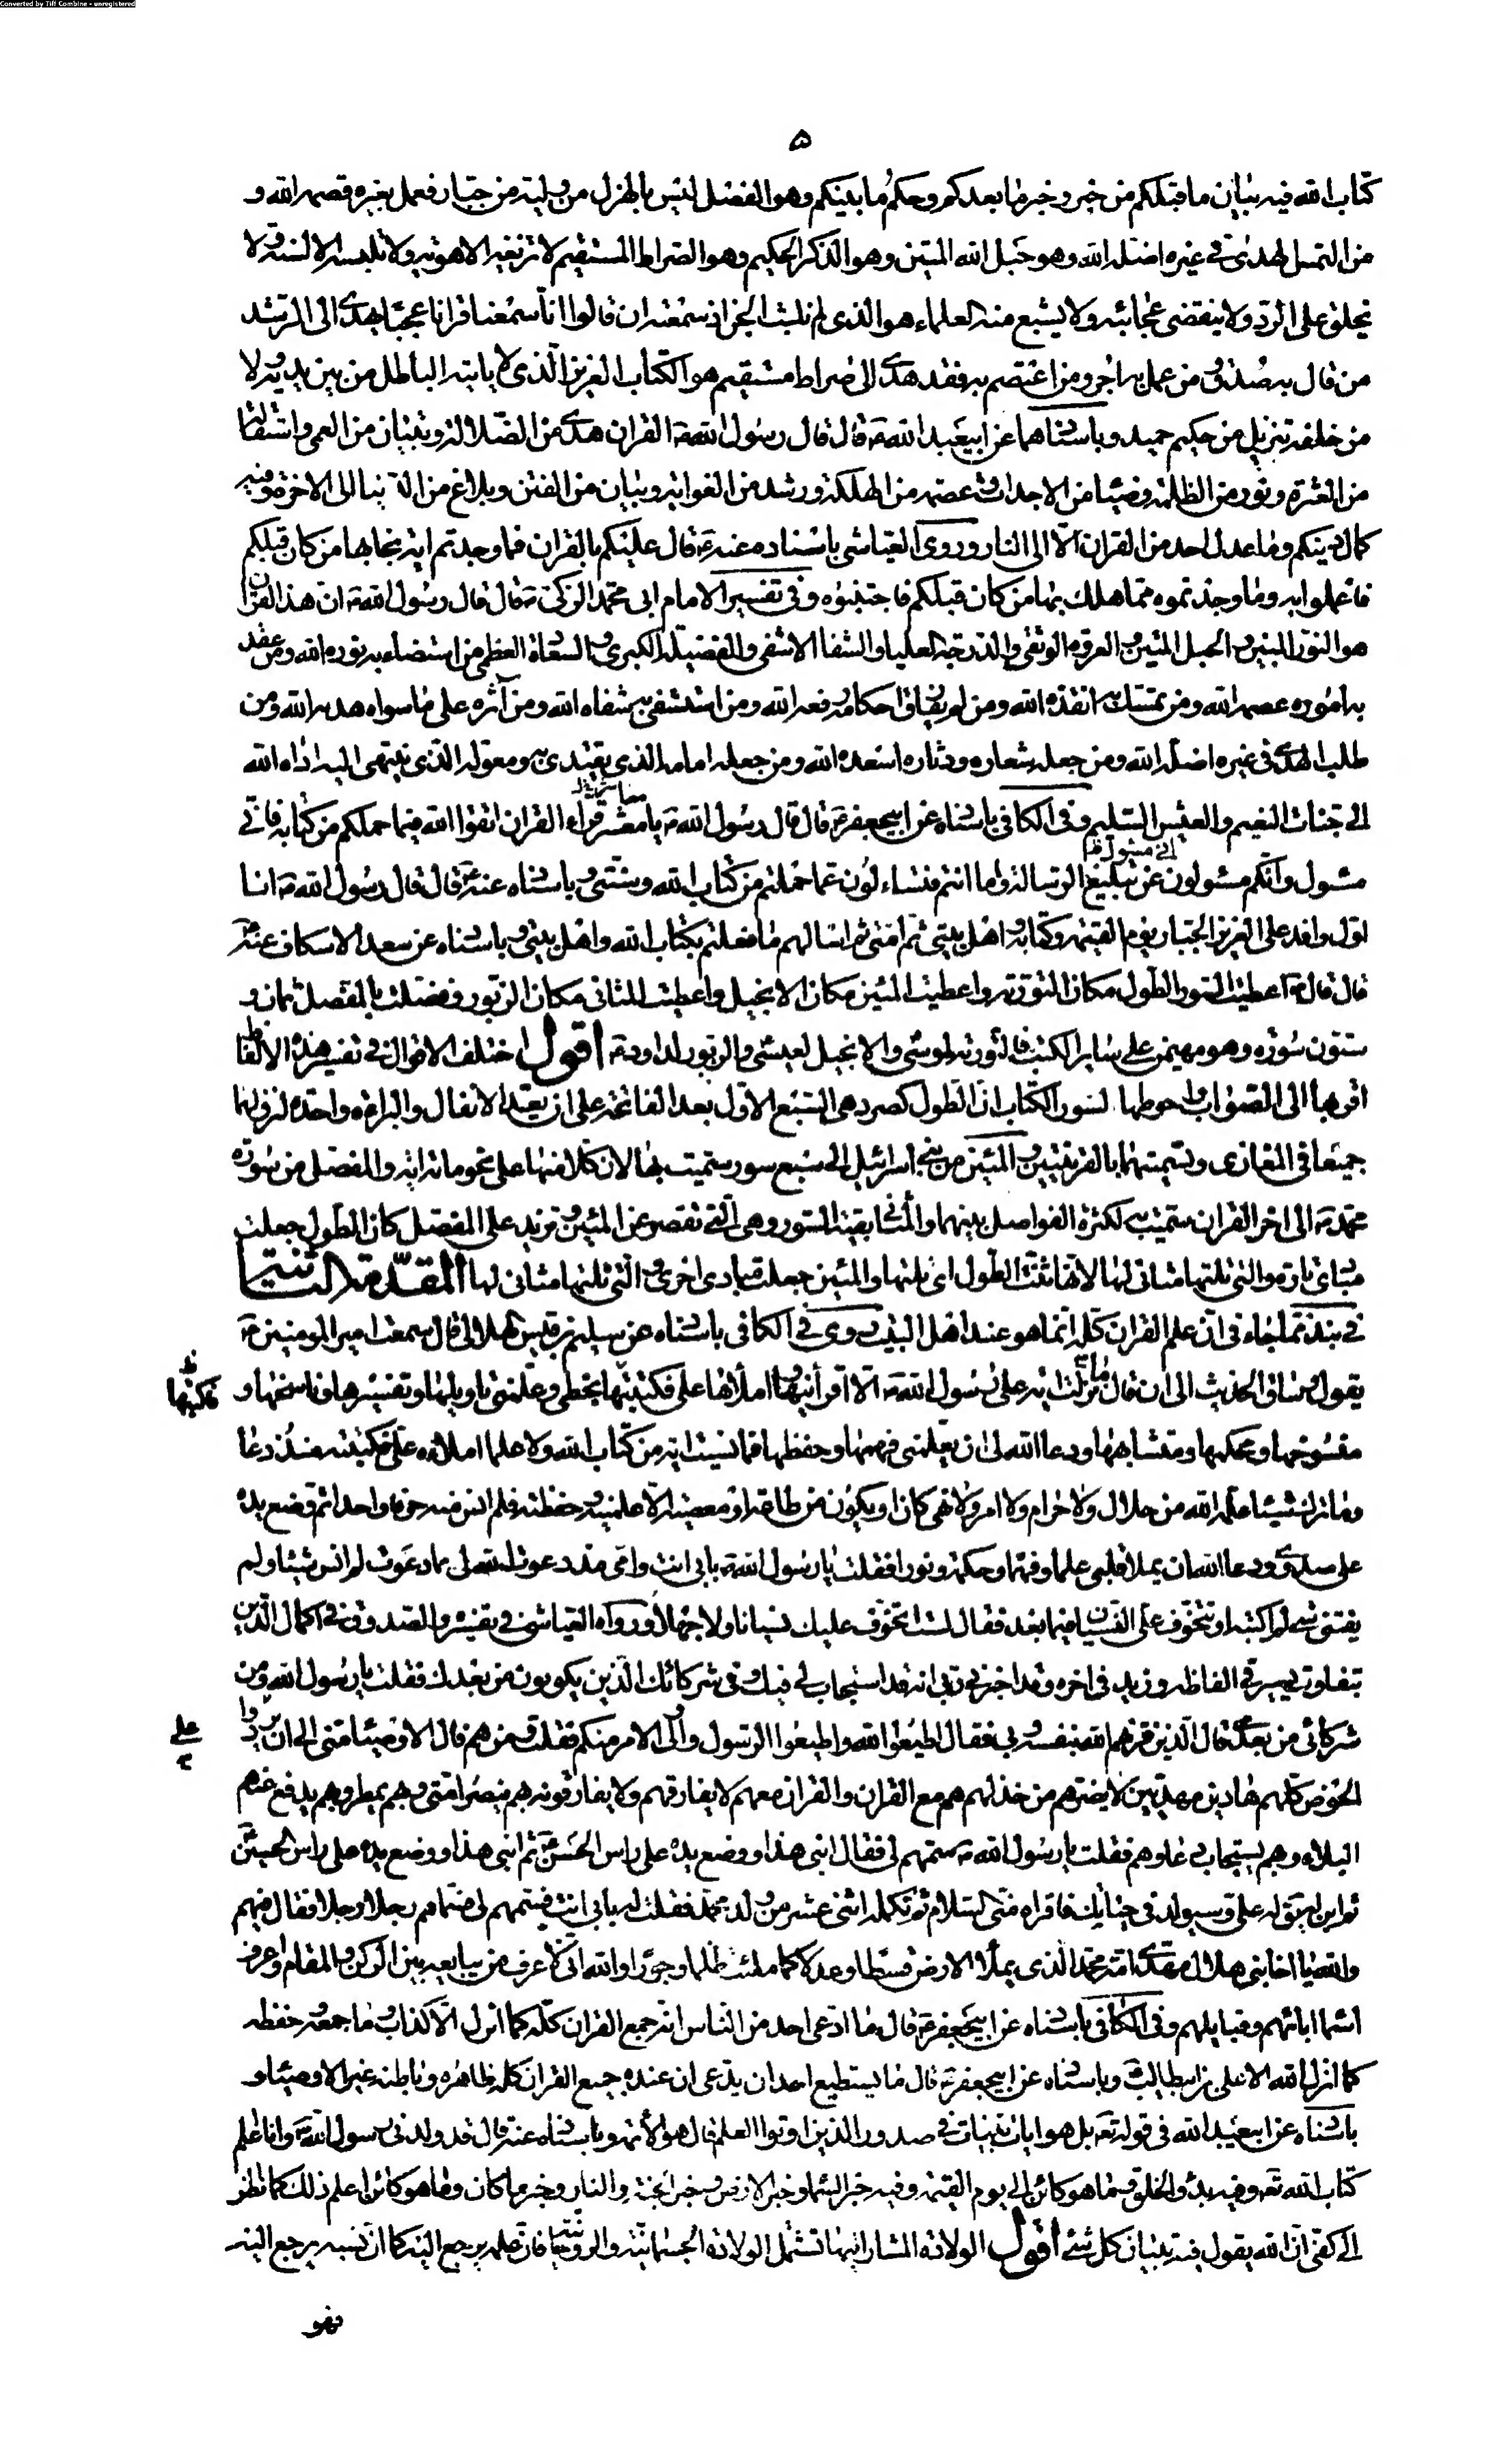 Converted by Tiff Combine - unregistered
۵
كتاب الله فيه بيان ما قبلكم من خبر وخبر ما بعدكم وحكم ما بينكم وهو الفصل ليس بالهزل من وليه من جبار فعمل بغيره قصمه الله و
من التمس الهدى في غيره اضله الله وهو حبل الله المتين وهو الذكر الحكيم وهو الصراط المستقيم لا تزيغه الاهوية ولا تلبسه الالسنة ولا
يخلق على الرد ولا ينقضي عجائبه ولا يشبع منه العلماء هو الذي لم تلبث الجن اذ سمعته ان قالوا انا سمعنا قرانا عجبا يهدي الى الرشد
من قال به صدق ومن عمل به اجر ومن اعتصم به فقد هدي الى صراط مستقيم هو الكتاب العزيز الذي لا ياتيه الباطل من بين يديه ولا
من خلفه تنزيل من حكيم حميد وباسنادهما عن ابيعبد الله ع قال قال رسول الله ص القران هدى من الضلالة وتبيان من العمى واستقالة
من العثرة ونور من الظلمة وضياء من الاحداث وعصمة من الهلكة ورشد من الغواية وبيان من الفتن وبلاغ من الدنيا الى الاخرة وفيه
كمال دينكم وما عدل احد من القران الا الى النار وروى العياشي باسناده عنه ع قال عليكم بالقران فما وجدتم اية نجا بها من كان قبلكم
فاعملوا به وما وجدتموه مما هلك بها من كان قبلكم فاجتنبوه وفي تفسير الامام ابي محمد الزكي ع قال قال رسول الله ص ان هذا القران
هو النور المبين والحبل المتين والعروة الوثقى والدرجة العليا والشفا الاشفى والفضيلة الكبرى والسعادة العظمى من استضاء به نوره الله ومن عقد
به اموره عصمه الله ومن تمسك به انقذه الله ومن لم يفارق احكامه رفعه الله ومن استشفى به شفاه الله ومن آثره على ما سواه هداه الله ومن
طلب الهدى في غيره اضله الله ومن جعله شعاره ودثاره اسعده الله ومن جعله امامه الذي يقتدي به ومعوله الذي ينتهي اليه اداه الله
الى جنات النعيم والعيش السليم وفي الكافي باسناده عن ابيجعفر ع قال قال رسول الله ص يا معشر قراء القران اتقوا الله فيما حملكم من كتابه فاني
مسئول وانكم مسئولون عن تبليغ الرسالة واما انتم فتساءلون عما حملتم من كتاب الله وسنتي وباسناده عنه ع قال قال رسول الله ص انا
اول وافد على العزيز الجبار يوم القيمة وكتابه واهل بيتي ثم امتي ثم اسالهم ما فعلتم بكتاب الله واهل بيتي وباسناده عن سعد الاسكاف عنه ع
قال قال ص اعطيت السور الطول مكان التورية واعطيت المئين مكان الانجيل واعطيت المثاني مكان الزبور وفضلت بالمفصل ثمان و
ستون سورة وهو مهيمن على ساير الكتب فالتورية لموسى والانجيل لعيسى والزبور لداود ع اقول اختلف الاقوال في تفسير هذه الالفاظ
اقربها الى الصواب واحوطها لسور الكتاب ان الطول كصرد هي السبع الاول بعد الفاتحة على ان يعد الانفال والبراءة واحدة لنزولهما
جميعا في المغازي وتسميتهما بالقرينتين والمئين من بني اسرائيل الى سبع سور سميت بها لان كلا منها على نحو ماة اية والمفصل من سورة
محمد ص الى اخر القران سميت به لكثرة الفواصل بينها والمثاني بقية السور وهي التي تقصر عن المئين وتزيد على المفصل كان الطول جعلت
مبادي تارة والتي تلتها مثاني لها لانها ثنت الطول اي تلتها والمئين جعلت مبادي اخرى والتي تلتها مثاني لها المقدمة الثانية
في نبذ مما جاء في ان علم القران كله انما هو عند اهل البيت روي في الكافي باسناده عن سليم بن قيس الهلالي قال سمعت امير المومنين ع
يقول وساق الحديث الى ان قال ما نزلت اية على رسول الله ص الا اقرأنيها واملاها على فكتبتها بخطي وعلمني تاويلها وتفسيرها وناسخها و
فاكتبها
منسوخها ومحكمها ومتشابهها ودعا الله لي ان يعلمني فهمها وحفظها فما نسيت اية من كتاب الله ولا علما املاه علي فكتبته منذ دعا
وما ترك شيئا علمه الله من حلال ولا حرام ولا امر ولا نهي كان او يكون من طاعة او معصية الا علمنيه وحفظته فلم انس منه حرفا واحدا ثم وضع يده
على صدري ودعا الله ان يملا قلبي علما وفهما وحكمة ونورا فقلت يا رسول الله ص بابي انت وامي مذ دعوت الله لي بما دعوت لم انس شيئا ولم
يفتني شي لم اكتبه او تتخوف علي النسيان فيما بعد فقال لست اتخوف عليك نسيانا ولا جهلا ورواه العياشي في تفسيره والصدوق في اكمال الدين
بتفاوت يسير في الفاظه وزيد في اخره وقد اخبرني ربي انه قد استجاب لي فيك وفي شركائك الذين يكونون من بعدك فقلت يا رسول الله ومن
شركائي من بعدي قال الذين قرنهم الله بنفسه وبي فقال اطيعوا الله واطيعوا الرسول واولى الامر منكم فقلت ومن هم قال الاوصياء مني الى ان يردوا
على
الحوض كلهم هادين مهديين لا يضرهم من خذلهم هم مع القران والقران معهم لا يفارقهم ولا يفارقونه بهم ينصر امتي وبهم يمطر وبهم يدفع عنهم
البلاء وبهم يستجاب دعاوهم فقلت يا رسول الله ص سمهم لي فقال ابني هذا ووضع يده على راس الحسن ع ثم ابني هذا ووضع يده على راس الحسين ع
ثم ابن له يقال له علي وسيولد في حياتك فاقراه مني السلام ثم تكمله اثني عشر من ولد محمد فقلت له بابي انت فسمهم لي فسماهم رجلا رجلا فقال فيهم
والله يا اخا بني هلال مهدي امة محمد الذي يملا الارض قسطا وعدلا كما ملئت ظلما وجورا والله اني لاعرف من يبايعه بين الركن والمقام واعرف
اسماء ابائهم وقبايلهم وفي الكافي باسناده عن ابيجعفر ع قال ما ادعى احد من الناس انه جمع القران كله كما انزل الا كذاب وما جمعه وحفظه
كما انزل الله الا علي بن ابيطالب ع وباسناده عن ابيجعفر ع قال ما يستطيع احد ان يدعي ان عنده جميع القران كله ظاهره وباطنه غير الاوصياء و
باسناده عن ابيعبد الله في قوله تع بل هو ايات بينات في صدور الذين اوتوا العلم قال هم الائمة وباسناده عنه ع قال قد ولدني رسول الله ص وانا اعلم
كتاب الله تع وفيه بدؤ الخلق وما هو كائن الى يوم القيمة وفيه خبر السماء وخبر الارض وخبر الجنة والنار وخبر ما كان وما هو كائن اعلم ذلك كما انظر
الى كفي ان الله يقول فيه تبيان كل شئ اقول الولادة المشار اليها تشمل الولادة الجسمانية والروحانية فان علمه يرجع اليه كما ان نسبه يرجع اليه
فهو